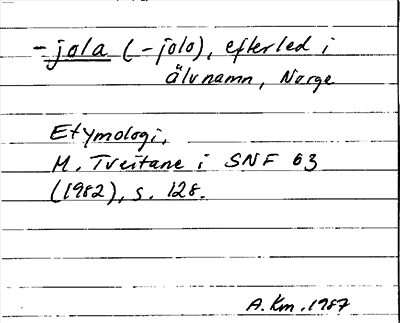 -jola (-jolo), efterled i
älvnamn, Norge
Etymologi.
M. Tveitane i SNF 63
(1982), s. 128.
A. Km. 1987